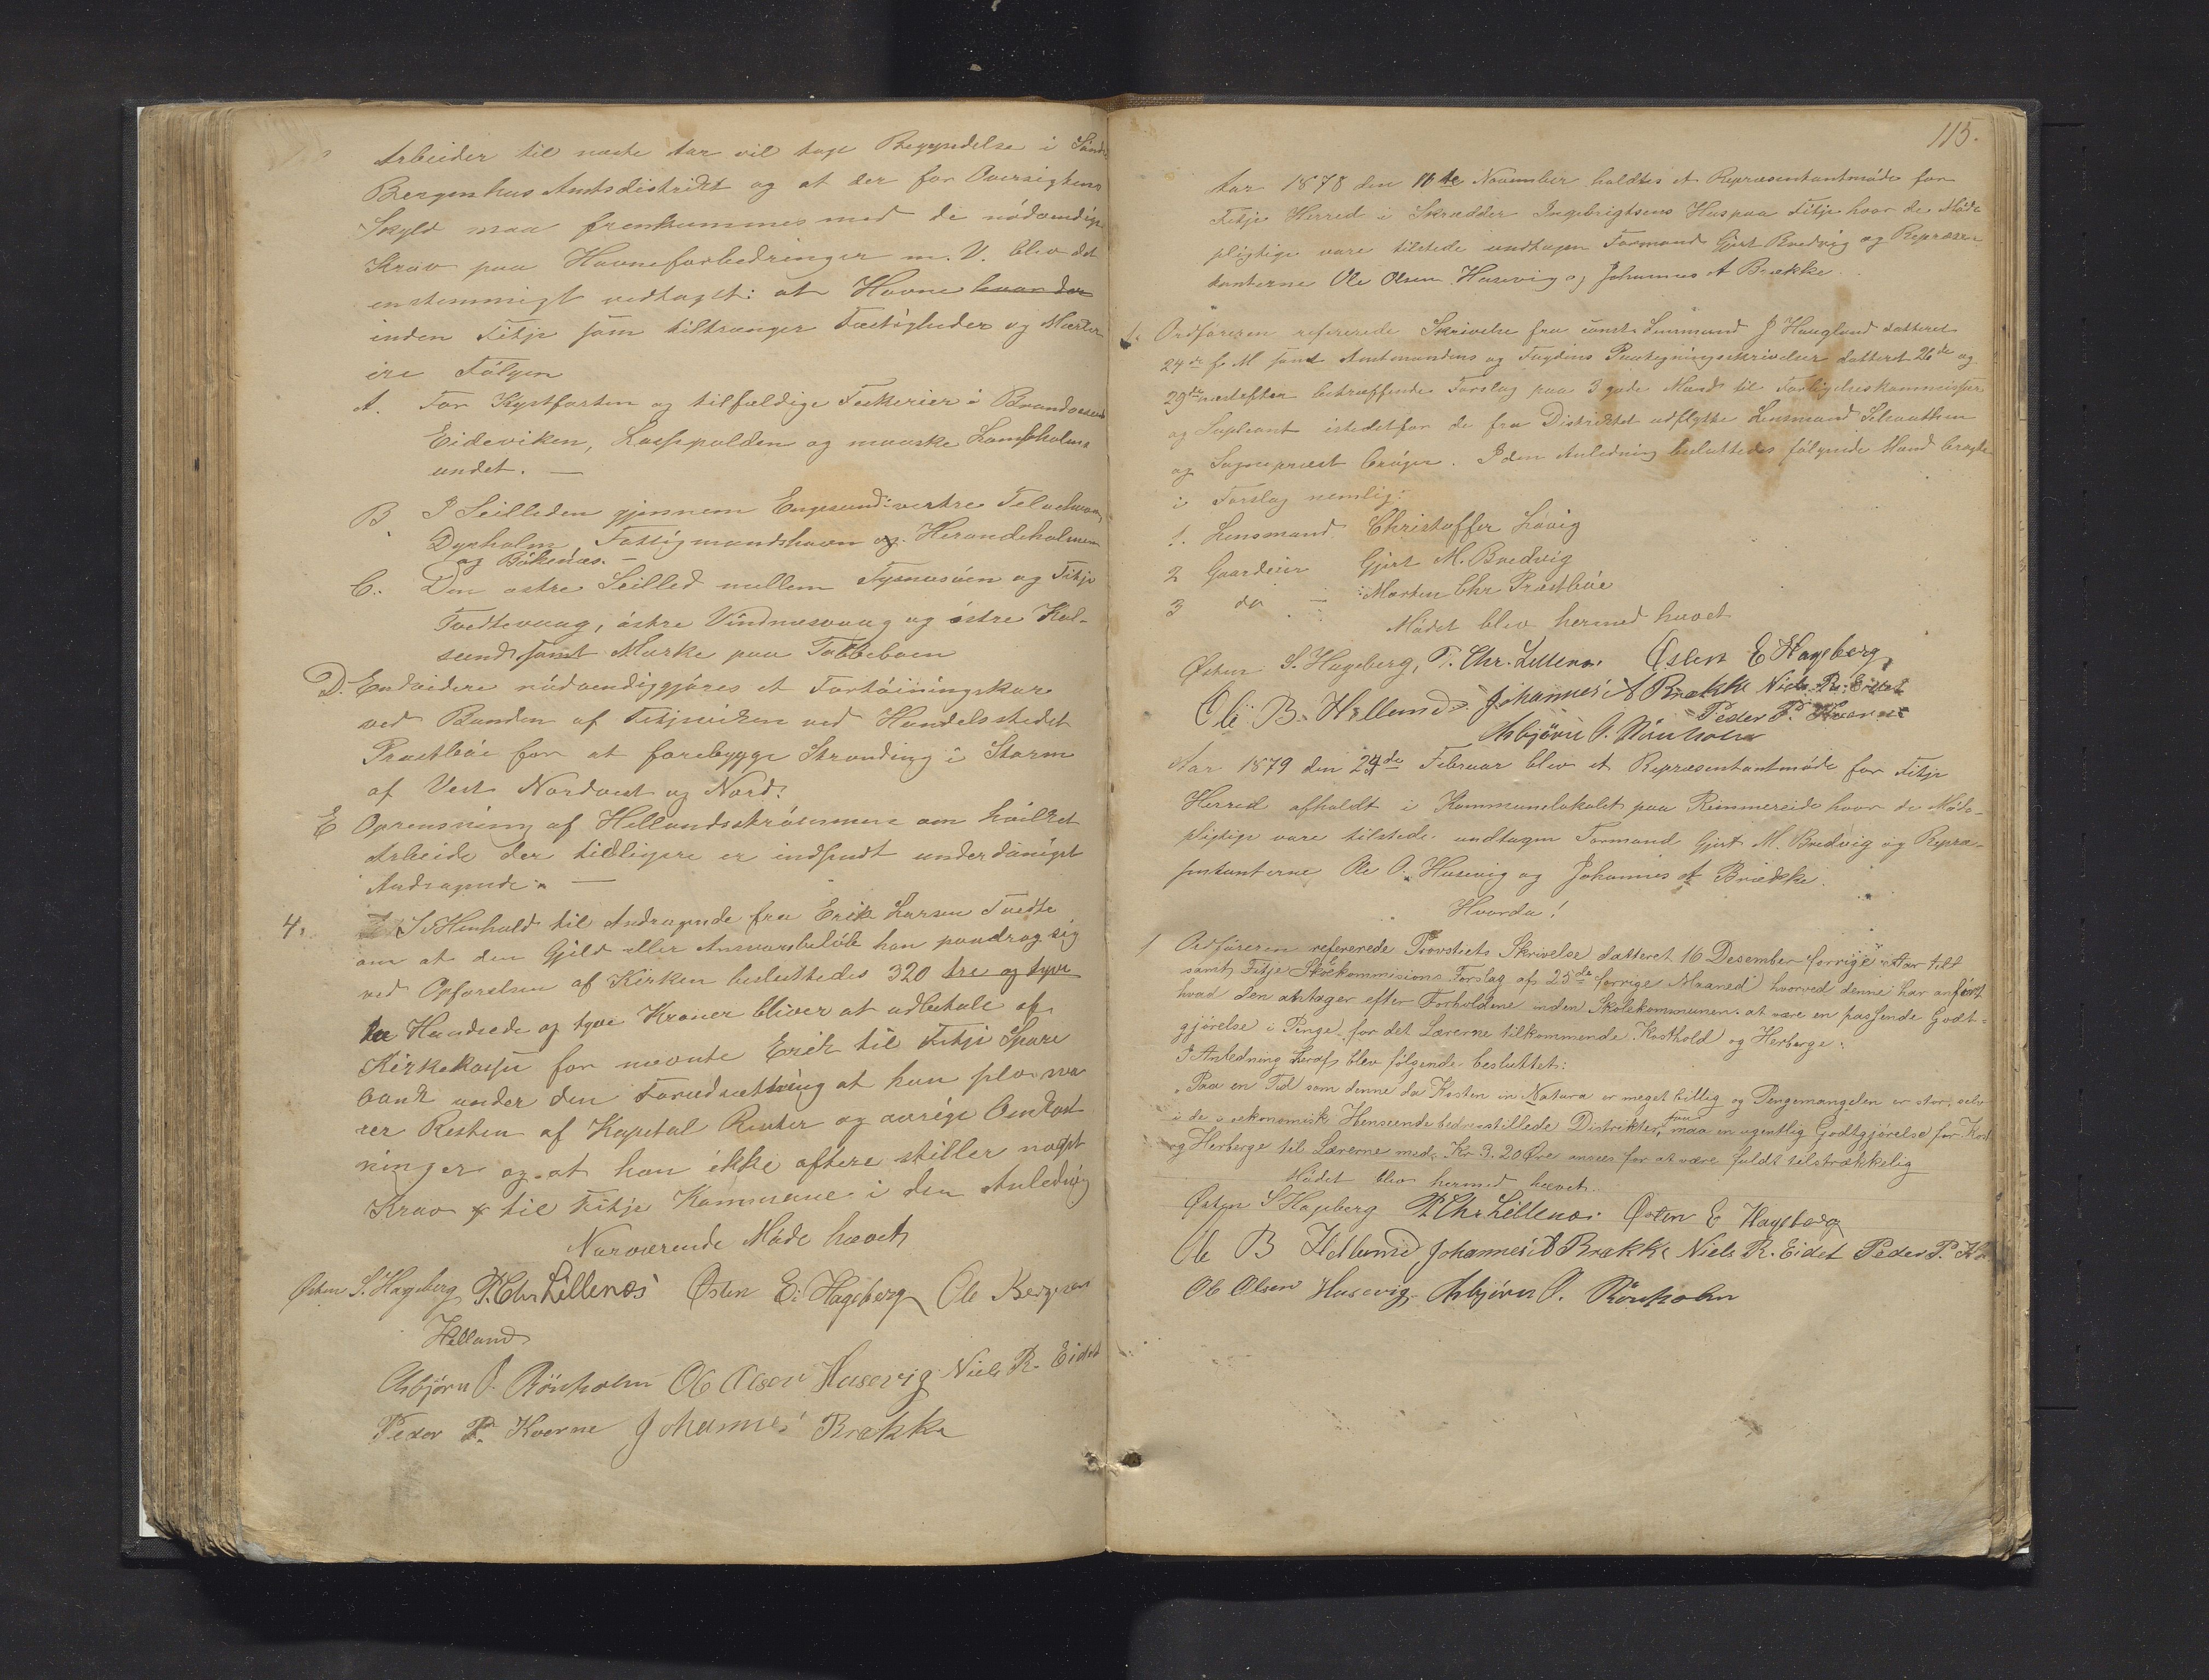 Arbeider til næste Aar vil tage Begyndelse i Sándr
Bergenhus Amtsdistrikt og at der for Oversigtens
Skyld maa fremkommes med de nödvendige
Krav paa Havneforbedringer m. V. blev det
enstemmigt vedtaget: at Havne hvor der
inden Fitje som tiltrænger Fæstigheder og Mærker
ere Fölgen
A. For Kystfarten og tilfældige Feskerier i Brandaesund
Eideviken, Laßpolden og maaske Lamholms
undet. —
B I Seilleden gjennem Engesund: vestre
Dyrholm Fattigmandshavn og Herandsholmen
og Bökenæs. —
C. Den östre Seilled mellem Tysnesöen og Fitje
Tvedtevaag, östre Vindnæsvaag og östre Kal-
sund samt Marke paa Tobbeboen
D. Endvidere nödvendiggjöres et Fortöiningskar
ved Bunden af Fitjeviken ved Handelsstedet
Præstböe for at forebygge Stranding i Storm
af Vest Nordvest og Nord.
E Oprensning af Hellandsströmmen om hvilket
Arbeide der tidligere er indsendt underdanigst
Andragende. —
4. I Henhold til Andragende fra Erik Larsen Tvedte
om at den Gjeld eller Ansvarsbelöb han paadrog sig
ved Opförelsen af Kirken besluttedes 320 tre og tyve
tre Hundrede og tyve Kroner bliver at udbetale af
Kirkekassen for nævnte Erik til Fitje Spare
bank under den Forudsætning at han selv sva
rer Resten af Kapital Renter og övrige Omkost
ninger og at han ikke oftere stiller noget
Krav til Fitje Kommune i den Anledning
Nærværende Möde hævet
Östen S. Hageberg P. Chr Lillenæs Östen E: Hageberg Ole Bergesen
Helland
Asbjörn O. Rönholm Ole Olsen Husevig Niels R. Eidet
Peder P. Kverne Johannes Brække
115.
Aar 1878 den 11te November holdtes et Repræsentantmöde for
Fitje Herred i Skrædder Ingebrigtsens Hus paa Fitje hvor de Möde
pligtige vare tilstede undtagen Formand Gjert Bredvig og Repræsen
tanterne Ole Olsen Husevig og Johannes A Brække.
1. Ordföreren refererede Skrivelse fra const. Lensmand J Haugland datteret
24de f. M samt Amtmandens og Fogdens Paategningsskrivelser datteret 26de og
29de næstefter betræffende Forslag paa 3 gode Mænd til Forligelseskommissær
og Supleant istedetfor de fra Distriktet udflytte Lensmand
og Sognepræst Kröger. I den Anledning besluttedes fölgende Mænd bragte
i Forslag nemlig:
1. Lensmand Christoffer Lavig
2 Gaardeier Gjert M. Bredvig
3 do — Morten Chr Præstböe
Mödet blev hermed hævet
Östen S. Hageberg, P. Chr. Lillenæs Östen E Hageberg,
Ole B. Hellund Johannes A Brække Niels R. Eidet
Peder P. Kverne
Asbjörn O. Rönholm
Aar 1879 den 24de Februar blev et Repræsentantmöde for Fitje
Herred afholdt i Kommunelokalet paa Rimmereide hvor de Möde-
pligtige vare tilstede undtagen Formand Gjert M. Bredvig og Repræ-
sentanterne Ole O. Husevig og Johannes A Brække.
Hvorda!
1 Ordföreren refererede Provstiets Skrivelse datteret 16 Desember forrige Aar til
samt Fitje Skolekommisions Forslag af 25de forrige Maaned hvorved denne har anfört
hvad den antager efter Forholdene inden Skolekommunen at være en passende Godt-
gjörelse i Penge for det Lærerne tilkommende Kosthold og Herberge:
I Anledning heraf blev fölgende besluttet:
"Paa en Tid som denne da Kosten in Natura er meget billig og Pengemangelen er stor, selv
i de i oekonomisk Henseende bedrestillede Distrikter, maa en ugentlig Godtgjörelse for Kost
og Herberge til Lærerne med Kr 3. 20 Öre ansees for at være fuldt tilstrækkelig
Mödet blev hermed hævet.
Östen S Hageberg P Chr Lillenæs Östen E Hageberg
Ole B Hellund Johannes A Brække Niels R. Eidet Peder P. K
Ole Olsen Husevig. Asbjörn O. Rönholm